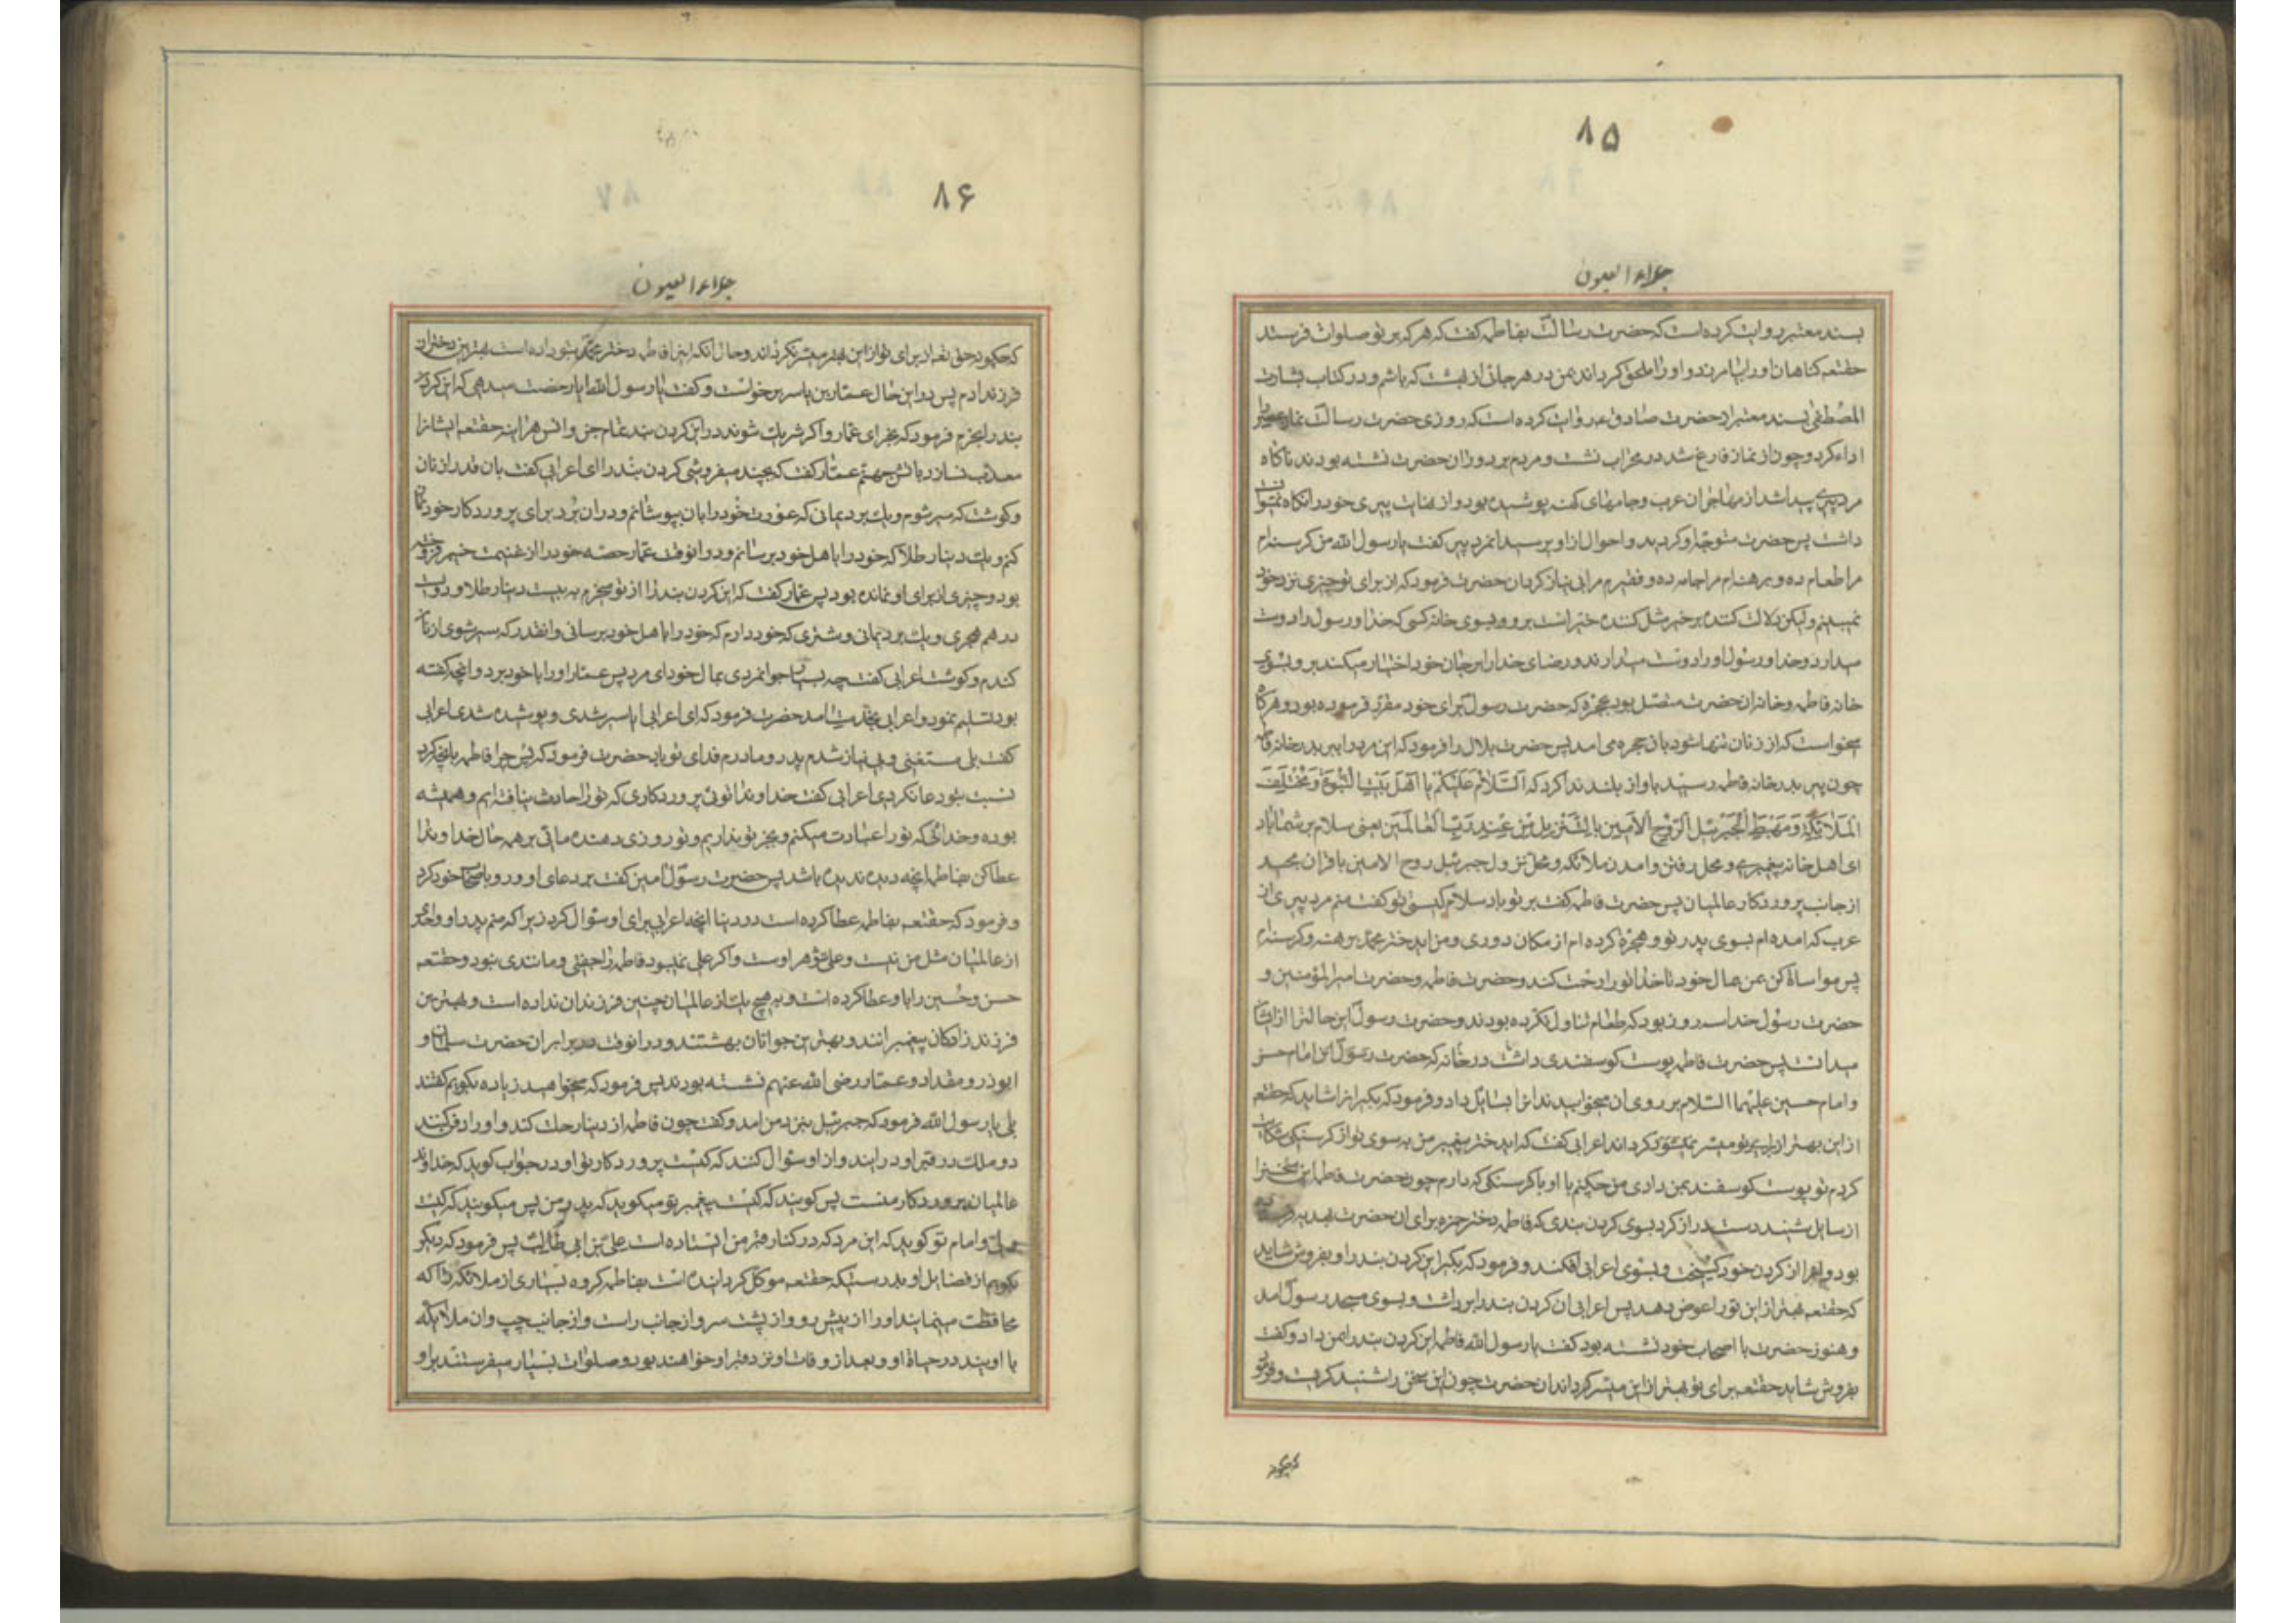 ۸۵
جلاء العیون
بسند معتبر روایت کرده است که حضرت رسالت بفاطمه کفت که هر که بر تو صلوات فرستد
حقتعه کناهان اورا بیامرزد و اورا ملحق کرداند بمن در هر جائی از بهشت که باشم و در کتاب بشارت
المصطفی بسند معتبر از حضرت صادق ع روایت کرده است که روزی حضرت رسالت نماز عصر را
اداء کرد و چون از نماز فارغ شد در محراب نشست و مردم بر دور ان حضرت نشسته بودند ناکاه
مرد پیری پیدا شد از مهاجران عرب و جامهای کهنه پوشیده بود و از نهایت پیری خود را نکاه نمیتوانست
داشت پس حضرت متوجه او کردید و احوال از او پرسید انمرد پیر کفت یا رسول الله من کرسنه ام
مرا طعام ده و برهنه ام مرا جامه ده و فقیرم مرا بی نیاز کردان حضرت فرمود که از برای تو چیزی نزد خود
نمیبینم ولیکن دلالت کننده بر خیر مثل کننده خیر است برو بسوی خانه کسی که خدا و رسول را دوست
میدارد و خدا و رسول او را دوست میدارند و رضای خدا را بر جان خود اختیار میکند برو بسوی
خانه فاطمه و خانه ان حضرت متصل بود بحجره که حضرت رسول برای خود مقرر فرموده بود و هرکاه
میخواست که از زنان تنها شود بان حجره می امد پس حضرت بلال را فرمود که این مرد را ببر بدر خانه فاطمه
چون پیر بدر خانه فاطمه رسید باواز بلند ندا کرد که السَّلامُ عَلَیْکُمْ یا اَهْلَ بَیْتِ النُّبُوَّةِ وَ مُخْتَلَفَ
الْمَلائِکَةِ وَ مَهْبِطَ الْجَبْرَئیلِ الرُّوحِ الْاَمینِ بِالتَّنْزیلِ مِنْ عِنْدِ رَبِّ الْعالَمینَ یعنی سلام بر شما باد
ای اهل خانه پیغمبری و محل رفتن و امدن ملائکه و محل نزول جبرئیل روح الامین با قران مجید
از جانب پروردکار عالمیان پس حضرت فاطمه کفت بر تو باد سلام کیستی تو کفت منم مرد پیری از
عرب که امده ام بسوی پدر تو و هجرة کرده ام از مکان دوری و من ایدختر محمد برهنه و کرسنه ام
پس مواساة کن بمن بمال خود تا خدا تورا رحمت کند و حضرت فاطمه و حضرت امیر المؤمنین و
حضرت رسول خدا سه روز بود که طعام تناول نکرده بودند و حضرت رسول این حالترا از ایشان
میدانست پس حضرت فاطمه پوست کوسفندی داشت در خانه که حضرت امام حسن
و امام حسین علیهما السلام بر روی ان میخوابیدند انرا بسائل داد و فرمود که بکیر انرا شاید که حقتعه
از این بهتر از برای تو میسر کرداند اعرابی کفت که ایدختر پیغمبر من به سوی تو از کرسنکی شکایت
کردم تو پوست کوسفند بمن دادی من چکنم با او با کرسنکی که دارم چون حضرت فاطمه این سخنرا
از سایل شنید دست دراز کرد بسوی کردن بندی که فاطمه دختر حمزه برای ان حضرت بهدیه فرستاده
بود و انرا از کردن خود کسیخت و بسوی اعرابی افکند و فرمود که بکیر این کردن بند را و بفروش شاید
که حقتعه بهتر از این تورا عوض دهد پس اعرابی ان کردن بند را برداشت و بسوی مسجد رسول امد
و هنوز حضرت با اصحاب خود نشسته بود کفت یا رسول الله فاطمه این کردن بند را بمن داد و کفت
بفروش شاید حقتعه برای تو بهتر از این میسر کرداند ان حضرت چون این سخن را شنید کریست و فرمود
که چکونه
۸۶
جلاء العیون
که چکونه حق تعه از برای تو از این بهتر میسر نکرداند و حال انکه اینرا فاطمه دختر محمد بتو داده است بهترین دختران
فرزند ادم پس در این حال عمار بن یاسر برخواست و کفت یا رسول الله ایا رخصت میدهی که این کردن
بند را بخرم فرمود که بخر ای عمار و اکر شریک شوند در این کردن بند تمام جن و انس هر اینه حقتعه ایشانرا
معذب نسازد باتش جهنم عمار کفت که بچند میفروشی کردن بند را ای اعرابی کفت بان قدر از نان
و کوشت که سیر شوم و یک برد یمانی که عورت خود را بان بپوشانم و در ان برد برای پروردکار خود نماز
کنم و یک دینار طلا که خود را باهل خود برسانم و در انوقت عمار حصه خود را از غنیمت خیبر فروخته
بود و چیزی از برای او نمانده بود پس عمار کفت که این کردن بند را از تو میخرم به بیست دینار طلا و دویست
درهم هجری و یک برد یمانی و شتری که خود دارم که خود را باهل خود برسانی و انقدر که سیر شوی از نان
کندم و کوشت اعرابی کفت چه بسیار جوانمردی بمال خود ای مرد پس عمار اورا با خود برد و انچه کفته
بود تسلیم نمود و اعرابی بخدمت امد حضرت فرمود که ای اعرابی ایا سیر شدی و پوشیده شدی اعرابی
کفت بلی مستغنی و بی نیاز شدم پدر و مادرم فدای تو باد حضرت فرمود که پس جزا فاطمه را بانچه کرد
نسبت بتو دعا نکردی اعرابی کفت خداوندا توئی پروردکاری که تورا حادث نیافته ایم و همیشه
بوده و خدائی که تورا عبادت میکنم و بجز تو نداریم و تو روزی دهنده مائی بر همه حال خداوندا
عطا کن بفاطمه انچه دیده ندیده باشد پس حضرت رسول امین کفت بر دعای او و رو باصحاب خود کرد
و فرمود که حقتعه بفاطمه عطا کرده است در دنیا انچه اعرابی برای او سئوال کرد زیرا که منم پدر او و احدی
از عالمیان مثل من نیست و علی شوهر اوست و اکر علی نمیبود فاطمه را جفتی و مانندی نبود و حقتعه
حسن و حسین را باو عطا کرده است و به هیچ یک از عالمیان چنین فرزندان نداده است و بهترین
فرزند زادکان پیغمبرانند و بهترین جوانان بهشتند و در انوقت در برابر ان حضرت سلمان و
ابوذر و مقداد و عمار رضی الله عنهم نشسته بودند پس فرمود که میخواهید زیاده بکویم کفتند
بلی یا رسول الله فرمود که جبرئیل بنزد من امد و کفت چون فاطمه از دنیا رحلت کند و اورا دفن کنند
دو ملک در قبر او در ایند و از او سئوال کنند که کیست پروردکار تو او در جواب کوید که خداوند
عالمیان پروردکار منست پس کویند که کیست پیغمبر تو میکوید که پدر من پس میکویند که کیست
و امام تو کوید که این مرد که در کنار قبر من ایستاده است علی بن ابی طالب پس فرمود که دیکر
بکویم از فضایل او بدرستیکه حقتعه موکل کردانیده است بفاطمه کروه بسیاری از ملائکه را که
محافظت مینمایند اورا از پیش رو و از پشت سر و از جانب راست و از جانب چپ و ان ملائکه
با اویند در حیاة او و بعد از وفات او نزد قبر او خواهند بود و صلوات بسیار میفرستند بر او